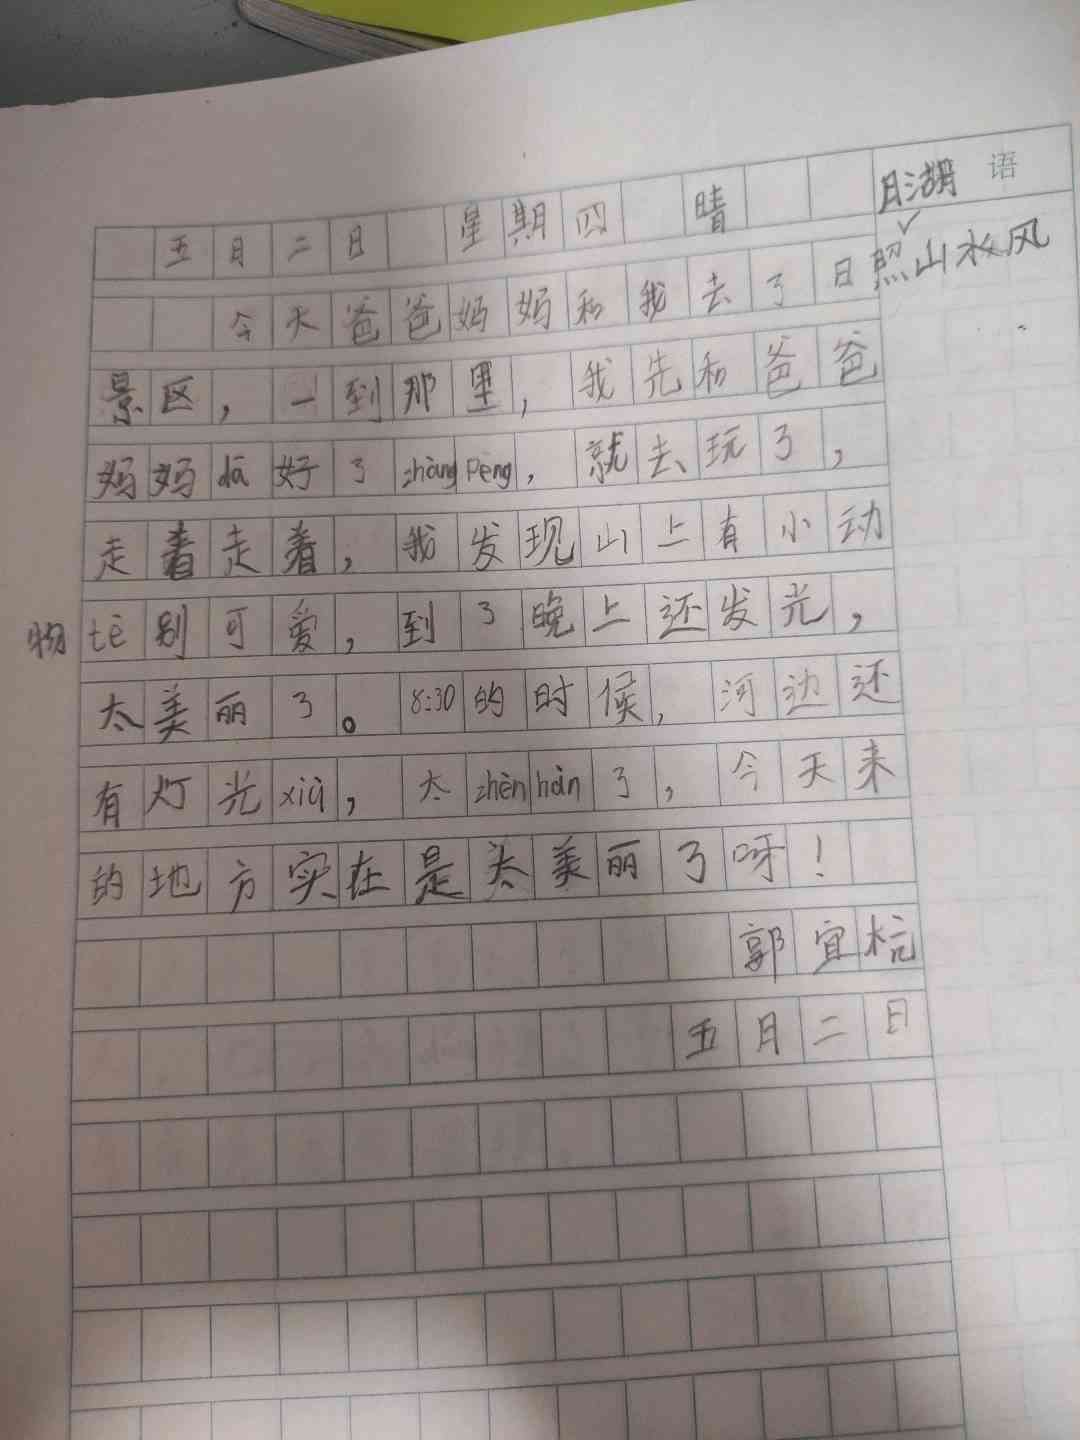 语
月湖
五月二日 星期四 晴
今天爸爸妈妈和我去了日照山水风
景区，一到那里，我先和爸爸
妈妈dā好了zhàngpeng，就去玩了，
走着走着，我发现山上有小动
物tè别可爱，到了晚上还发光，
太美丽了。8:30的时候，河边还
有灯光xiù，太zhènhàn了，今天来
的地方实在是太美丽了呀！
郭宜杭
五月二日